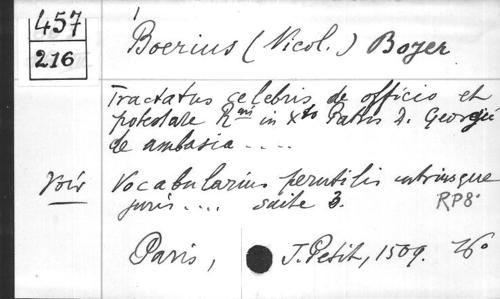 457
216
Boerius (Nicol.) Boyer
Tractatus celebris de officio et
potestate Rmi in Xto Patris D. Georgii
de ambasia ....
Voir Vocabularius perutilis utriusque
juris .... suite 3. RP8°
Paris, J. Petit, 1509.